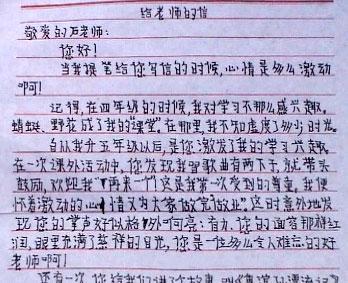 给老师的信
敬爱的石老师:
您好!
当我提笔给您写信的时候,心情是多么激动
啊!
记得,在四年级的时候,我对学习不那么感兴趣。
蜻蜓、野花成了我的"课堂"。在那里,我不知虚度了多少时光。
自从我升五年级以后,是您激发了我的学习兴趣。
在一次课外活动中,您发现我唱歌曲有两下子,就带头
鼓励,欢迎我"再来一个"这是我第一次受到的尊重。我便
怀着激动的心情又为大家做完做业"这时意外地发
现您的掌声好似格外响亮;有力,您的面容那样红
润,眼里充满了慈祥的目光,您是一位多么令人难忘的好
老师啊!
还有一次,您给我们讲了个故事,叫